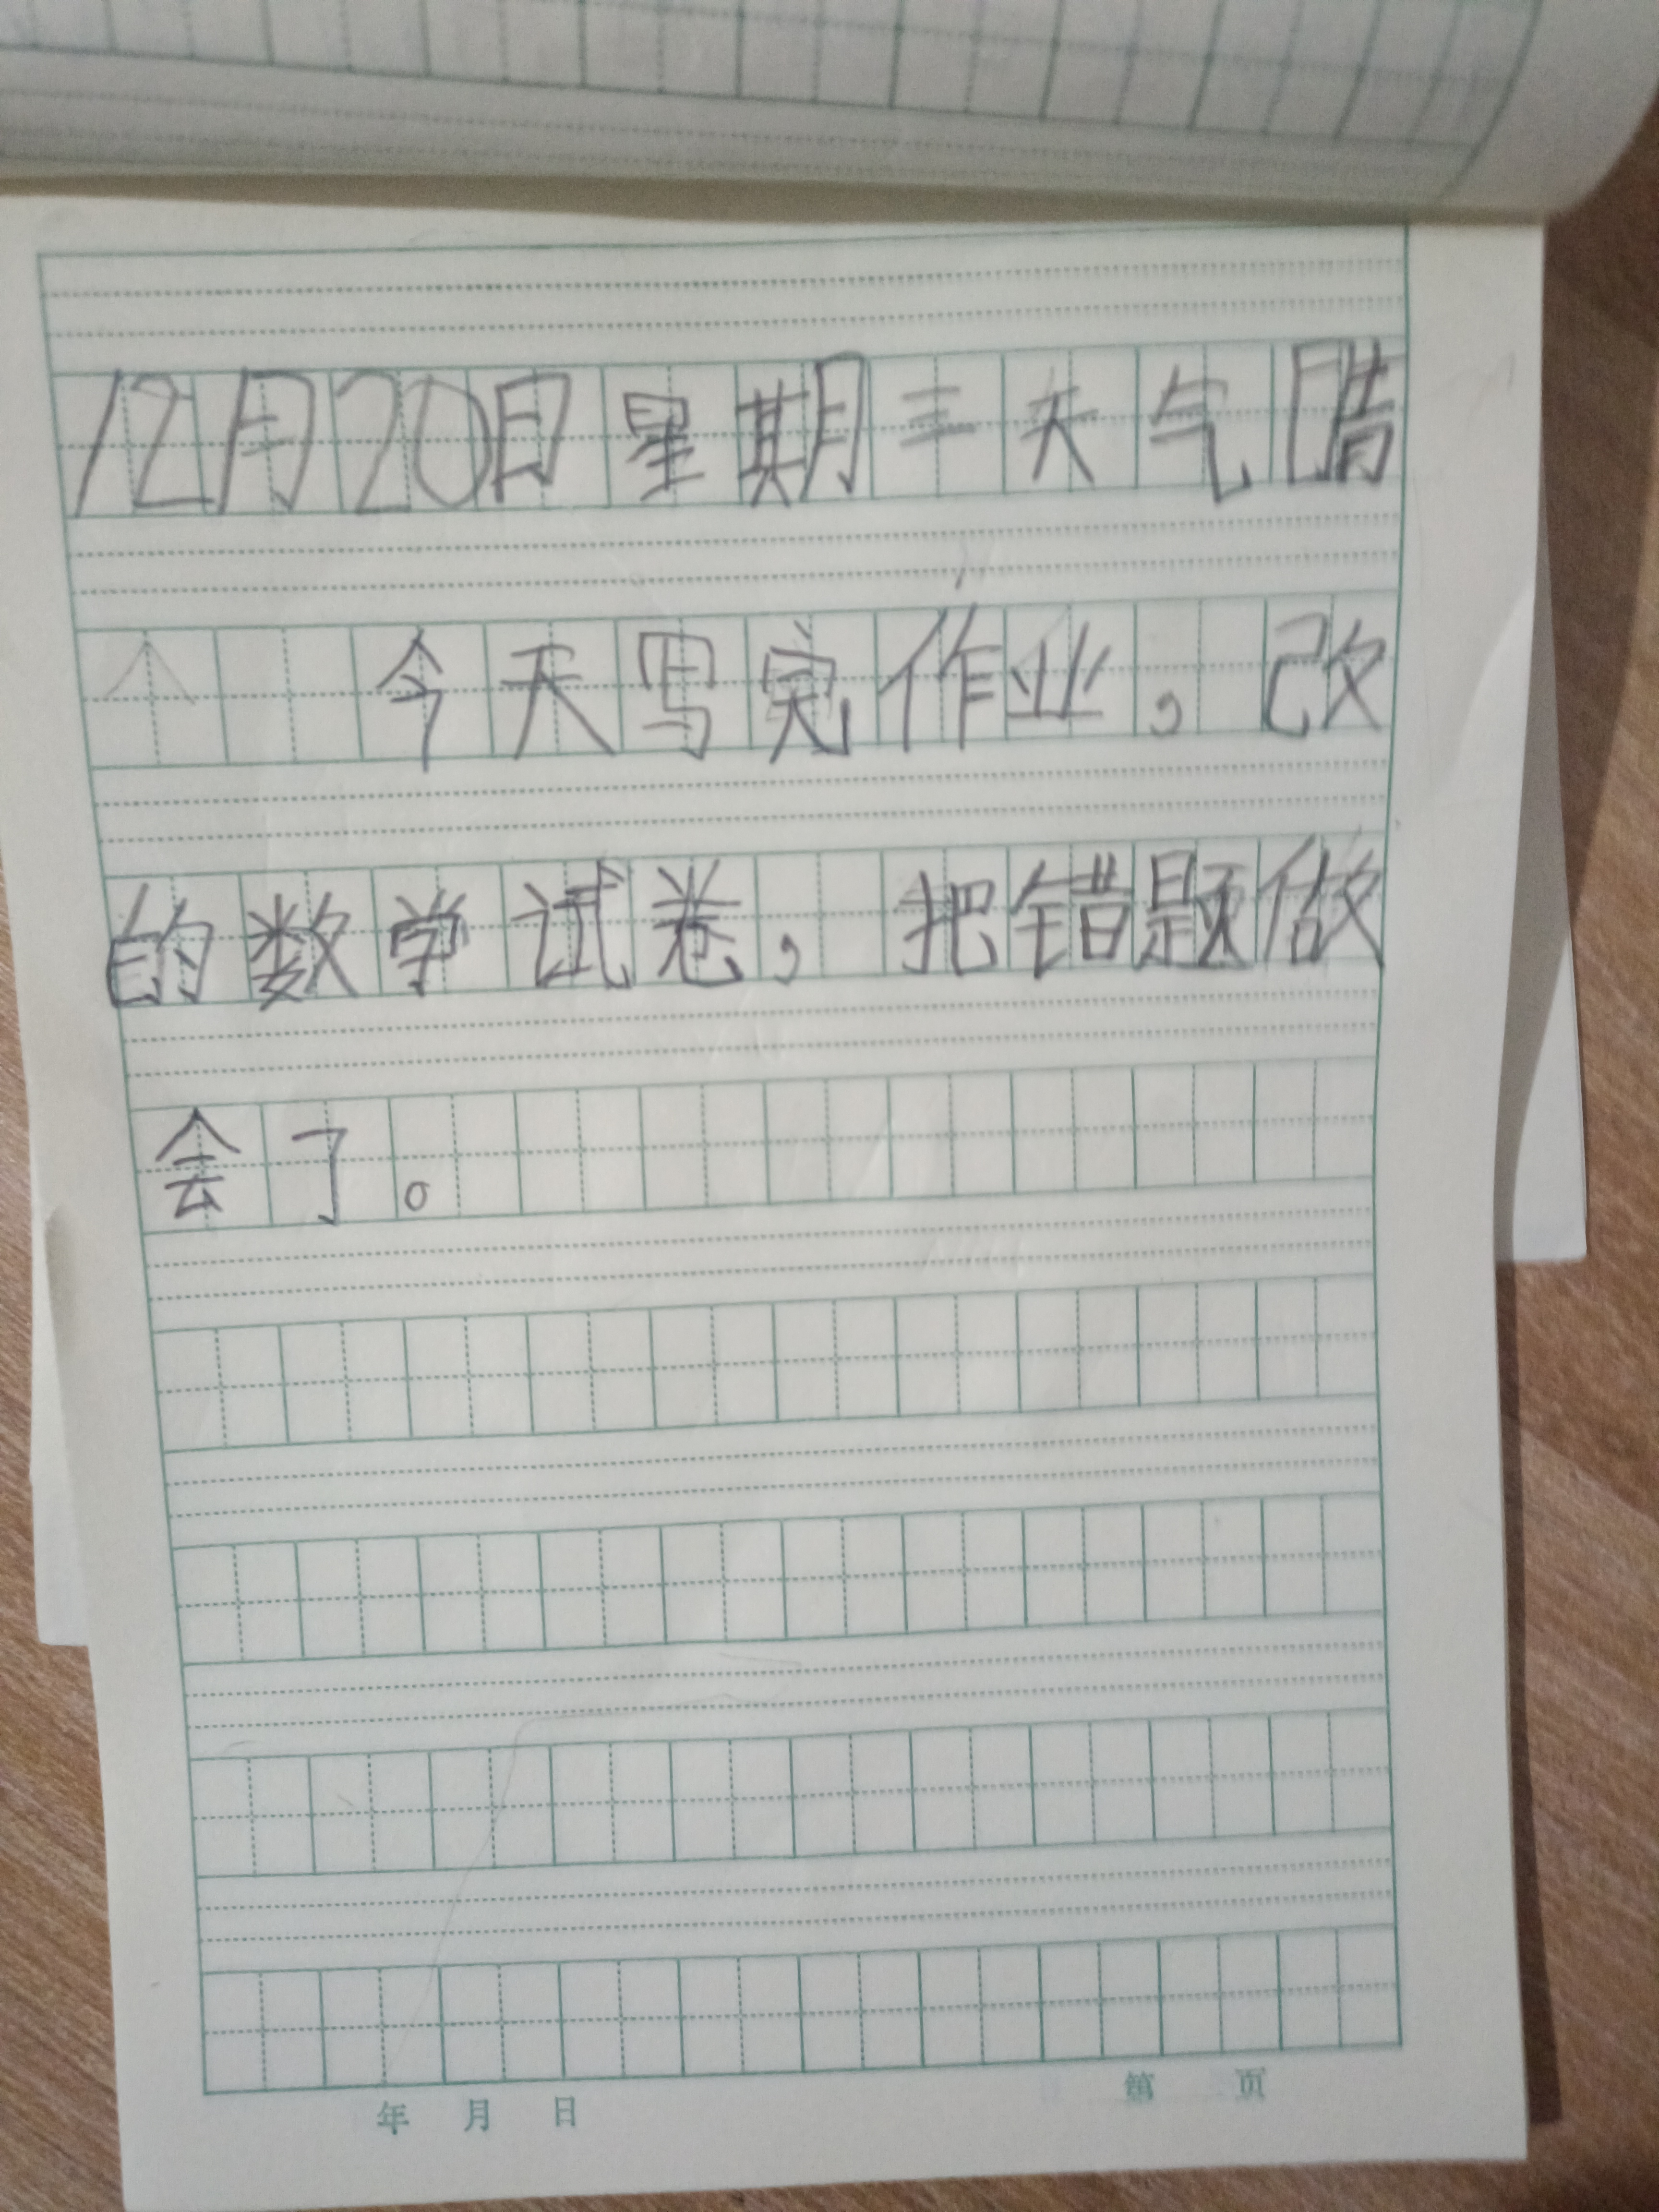 12月20日星期三天气晴
今天写完作业，改
的数学试卷，把错题做
会了。
年 月 日 第 页